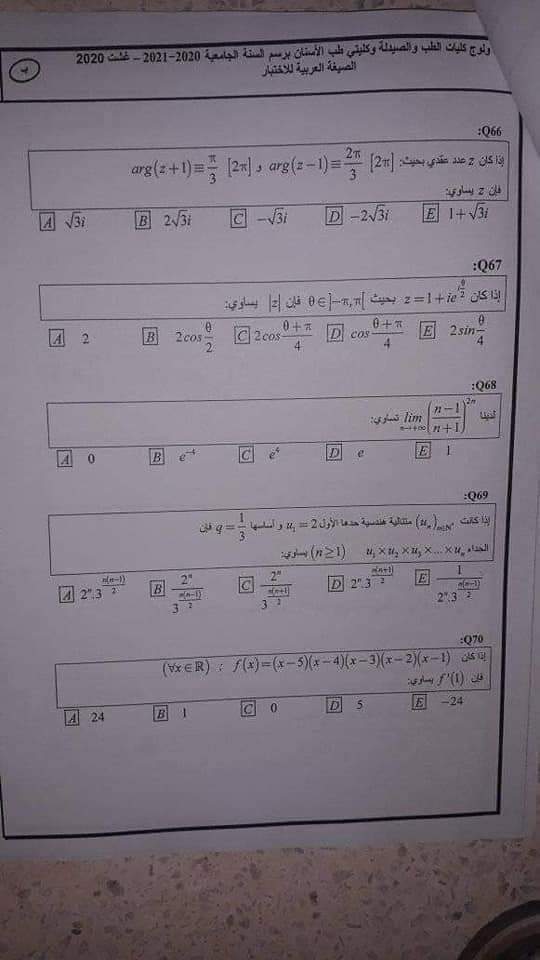 ولوج كليات الطب والصيدلة وكليتي طب الأسنان برسم السنة الجامعية 2020-2021 – غشت 2020
الصيغة العربية للاختبار
ب
Q66:
إذا كان z عدد عقدي بحيث: arg(z−1)≡2π/3 [2π] و arg(z+1)≡π/3 [2π]
فإن z يساوي:
A √3i B 2√3i C −√3i D −2√3i E 1+√3i
Q67:
إذا كان z=1+ie^{iθ/2} بحيث θ∈]−π,π[ فإن |z| يساوي:
A 2 B 2cos θ/2 C 2cos (θ+π)/4 D cos (θ+π)/4 E 2sin θ/4
Q68:
لدينا lim_{n→+∞} ((n−1)/(n+1))^{2n} تساوي:
A 0 B e^{−4} C e^{4} D e E 1
Q69:
إذا كانت (u_n)_{n∈ℕ*} متتالية هندسية حدها الأول u₁=2 و أساسها q=1/3 فإن
الجداء u₁×u₂×u₃×...×u_n (n≥1) يساوي:
A 2^n.3^{n(n−1)/2} B 2^n/3^{n(n−1)/2} C 2^n/3^{n(n+1)/2} D 2^n.3^{n(n+1)/2} E 1/(2^n.3^{n(n−1)/2})
Q70:
إذا كان (∀x∈ℝ) ; f(x)=(x−5)(x−4)(x−3)(x−2)(x−1)
فإن f'(1) يساوي:
A 24 B 1 C 0 D 5 E −24